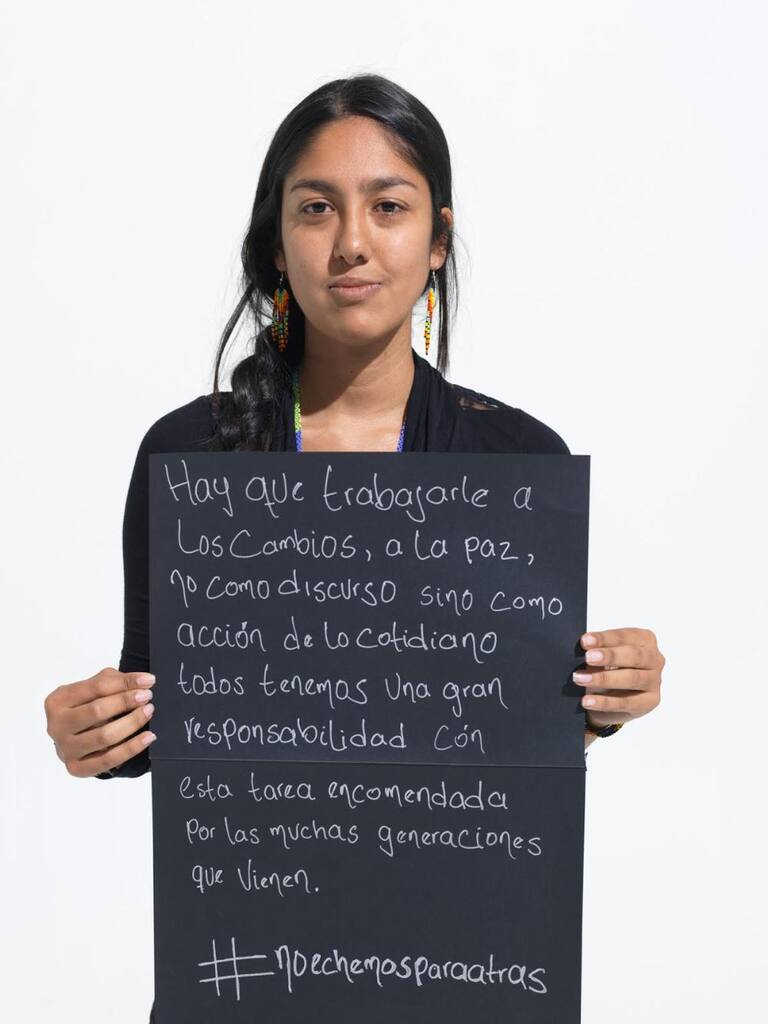 Hay que trabajarle a
Los Cambios, a la paz,
no como discurso sino como
acción de lo cotidiano
todos tenemos una gran
responsabilidad cón
esta tarea encomendada
por las muchas generaciones
que vienen.
#noechemosparaatras